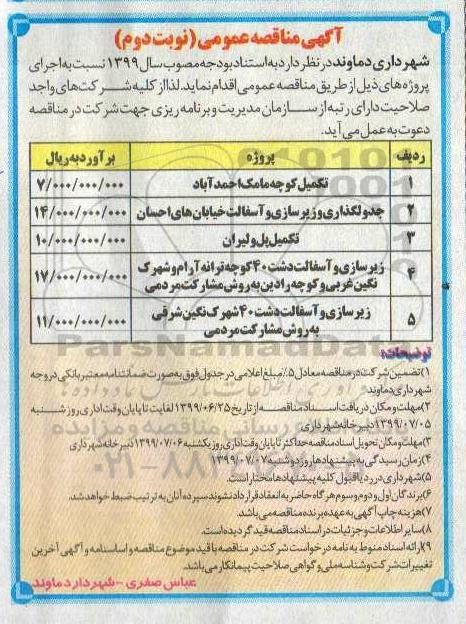 آگهی مناقصه عمومی (نوبت دوم)
شهرداری دماوند در نظر دارد به استناد بودجه مصوب سال ۱۳۹۹ نسبت به اجرای
پروژه های ذیل از طریق مناقصه عمومی اقدام نماید. لذا از کلیه شرکت های واجد
صلاحیت دارای رتبه از سازمان مدیریت و برنامه ریزی جهت شرکت در مناقصه
دعوت به عمل می آید.
ردیف پروژه برآورد به ریال
۱ تکمیل کوچه مامک احمدآباد ۷/۰۰۰/۰۰۰/۰۰۰
۲ جدولگذاری و زیرسازی و آسفالت خیابان های احسان ۱۴/۰۰۰/۰۰۰/۰۰۰
۳ تکمیل پل ولیران ۱۰/۰۰۰/۰۰۰/۰۰۰
۴ زیرسازی و آسفالت دشت ۴۰ کوچه ترانه آرام و شهرک
نگین غربی و کوچه رادین به روش مشارکت مردمی ۱۷/۰۰۰/۰۰۰/۰۰۰
۵ زیرسازی و آسفالت دشت ۴۰ شهرک نگین شرقی
به روش مشارکت مردمی ۱۱/۰۰۰/۰۰۰/۰۰۰
توضیحات:
۱) تضمین شرکت در مناقصه معادل ۵٪ مبلغ اعلامی در جدول فوق به صورت ضمانتنامه معتبر بانکی در وجه
شهرداری دماوند
۲) مهلت و مکان دریافت اسناد مناقصه از تاریخ ۱۳۹۹/۰۶/۲۵ لغایت تا پایان وقت اداری روز شنبه
۱۳۹۹/۰۷/۰۵ دبیرخانه شهرداری
۳) مهلت و مکان تحویل اسناد مناقصه حداکثر تا پایان وقت اداری روز یکشنبه ۱۳۹۹/۰۷/۰۶ دبیرخانه شهرداری
۴) زمان رسیدگی به پیشنهادها روز دوشنبه ۱۳۹۹/۰۷/۰۷
۵) شهرداری در رد یا قبول کلیه پیشنهادها مختار است.
۶) برندگان اول و دوم و سوم هرگاه حاضر به انعقاد قرارداد نشوند سپرده آنان به ترتیب ضبط خواهد شد.
۷) هزینه چاپ آگهی به عهده برنده مناقصه می باشد.
۸) سایر اطلاعات و جزئیات در اسناد مناقصه قید گردیده است.
۹) ارائه اسناد منوط به نامه درخواست شرکت در مناقصه با قید موضوع مناقصه و اساسنامه و آگهی آخرین
تغییرات شرکت و شناسه ملی و گواهی صلاحیت پیمانکار می باشد.
عباس صفری - شهردار دماوند
ParsNamadData